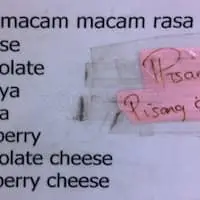 macam macam rasa
se
olate
ya
a
berry
olate cheese
berry cheese
Pisan
Pisang